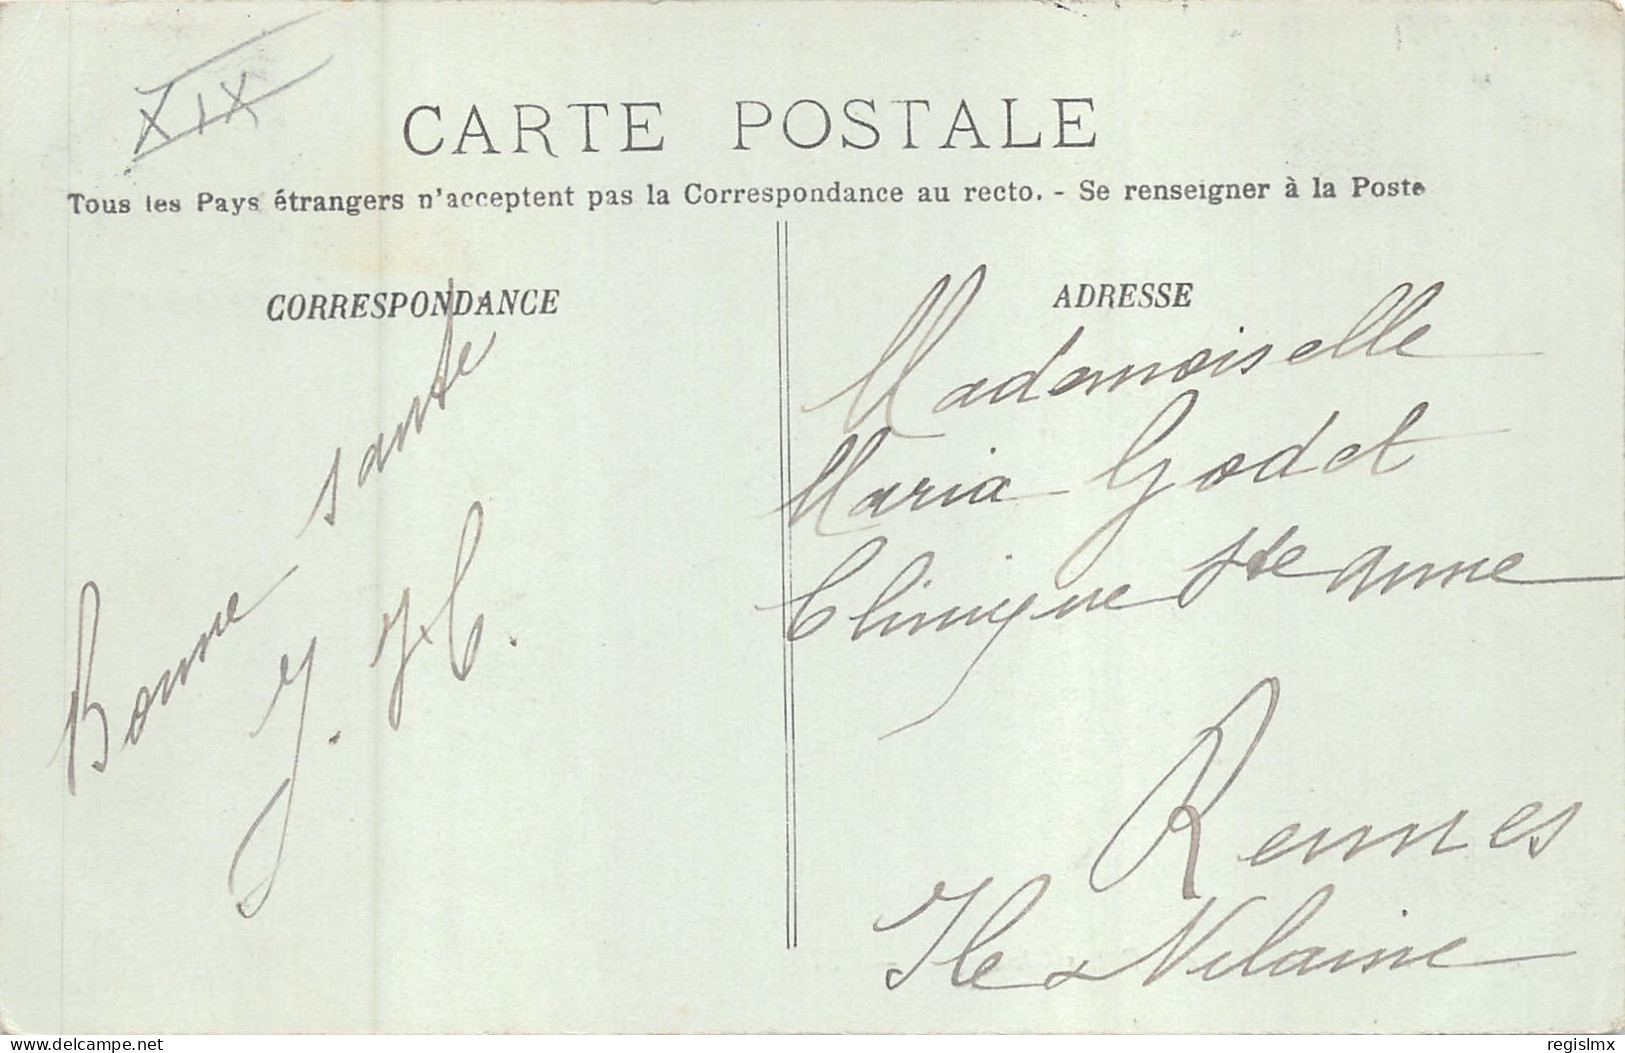 XIX
CARTE POSTALE
Tous les Pays étrangers n'acceptent pas la Correspondance au recto. - Se renseigner à la Poste
CORRESPONDANCE
Bonne sante
ADRESSE
Mademoiselle
Maria Godet
Clinique Ste Anne
Rennes
Ile & Vilaine
www.delcampe.net
regislmx